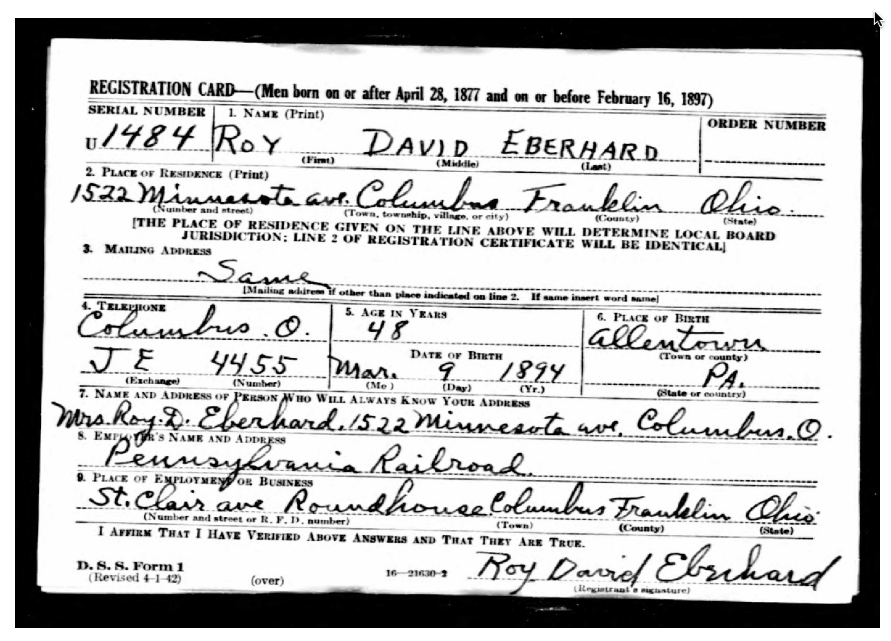 REGISTRATION CARD—(Men born on or after April 28, 1877 and on or before February 16, 1897)
SERIAL NUMBER 1. NAME (Print) ORDER NUMBER
U 1484 ROY DAVID EBERHARD
(First) (Middle) (Last)
2. PLACE OF RESIDENCE (Print)
1522 Minnesota ave. Columbus Franklin Ohio.
(Number and street) (Town, township, village, or city) (County) (State)
[THE PLACE OF RESIDENCE GIVEN ON THE LINE ABOVE WILL DETERMINE LOCAL BOARD
JURISDICTION; LINE 2 OF REGISTRATION CERTIFICATE WILL BE IDENTICAL]
3. MAILING ADDRESS
Same
[Mailing address if other than place indicated on line 2. If same insert word same]
4. TELEPHONE 5. AGE IN YEARS 6. PLACE OF BIRTH
Columbus. O. 48 Allentown
DATE OF BIRTH (Town or county)
JE 4455 Mar. 9 1894 PA.
(Exchange) (Number) (Mo.) (Day) (Yr.) (State or country)
7. NAME AND ADDRESS OF PERSON WHO WILL ALWAYS KNOW YOUR ADDRESS
Mrs. Roy. D. Eberhard. 1522 Minnesota ave. Columbus. O.
8. EMPLOYER'S NAME AND ADDRESS
Pennsylvania Railroad.
9. PLACE OF EMPLOYMENT OR BUSINESS
St. Clair ave Roundhouse Columbus Franklin Ohio.
(Number and street or R. F. D. number) (Town) (County) (State)
I AFFIRM THAT I HAVE VERIFIED ABOVE ANSWERS AND THAT THEY ARE TRUE.
D. S. S. Form 1
(Revised 4-1-42) (over) 16—21630-2 Roy David Eberhard
(Registrant's signature)